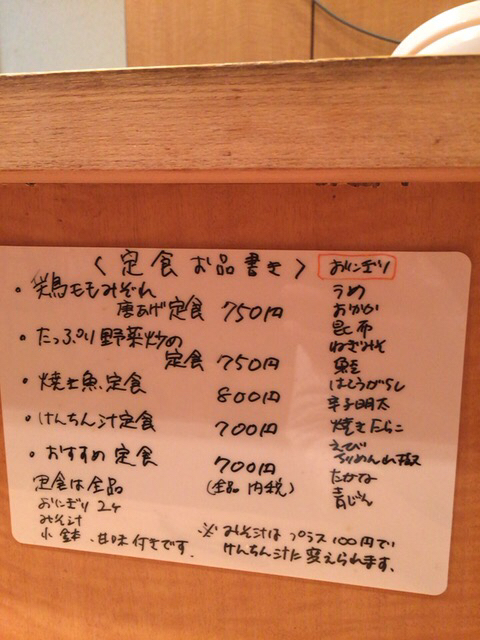 〈定食お品書き〉
・鶏ももみぞれ
唐あげ定食 750円
・たっぷり野菜炒めの
定食 750円
・焼き魚定食 800円
・けんちん汁定食 700円
・おすすめ定食 700円
定食は全品 (全品 内税)
おにぎり 2ケ
みそ汁
小鉢、甘味付きです。
※みそ汁はプラス100円で
けんちん汁に変えられます。
おにぎり
うめ
おかか
昆布
ねぎみそ
鮭
はしうがらし
辛子明太
焼きたらこ
えび
ちりめん山椒
たかな
青じそ